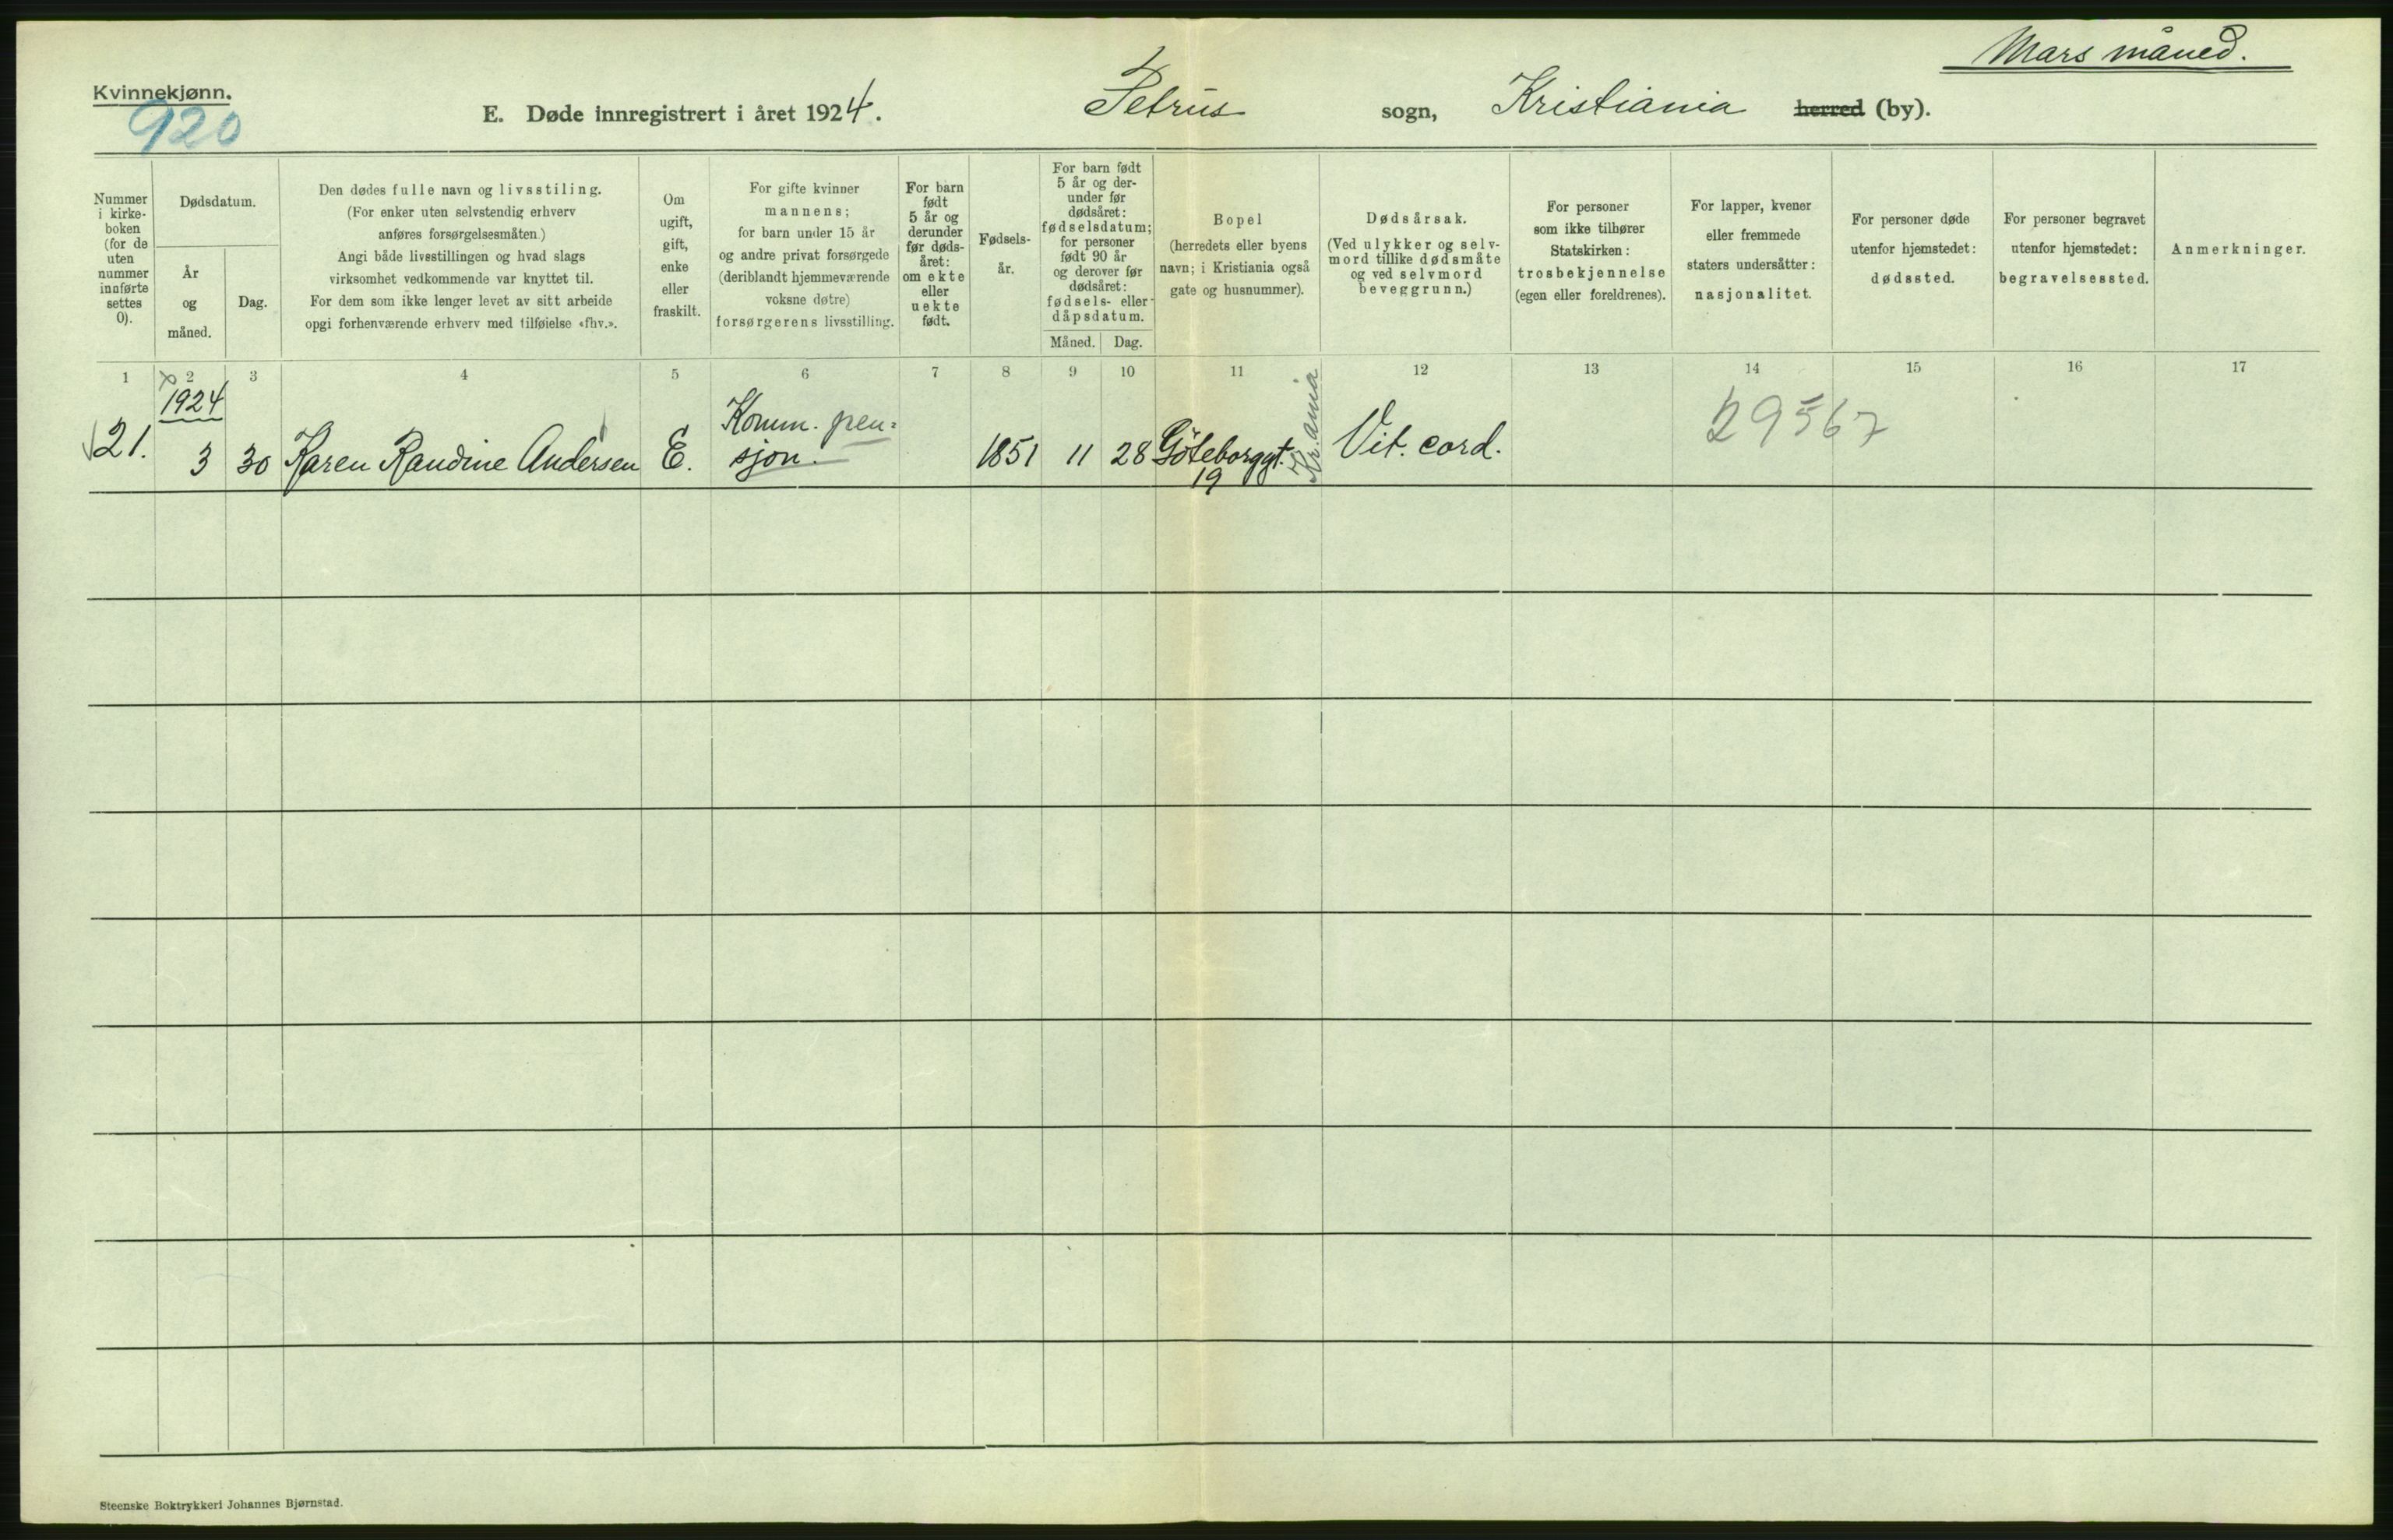 Mars måned.
Kvinnekjønn.
920
E. Døde innregistrert i året 1924. Petrus sogn, Kristiania herred (by).
Nummer i kirke-boken (for de uten nummer innførte settes 0).
Dødsdatum.
År og måned.
Dag.
Den dødes fulle navn og livsstiling.
(For enker uten selvstendig erhverv
anføres forsørgelsesmåten.)
Angi både livsstillingen og hvad slags
virksomhet vedkommende var knyttet til.
For dem som ikke lenger levet av sitt arbeide
opgi forhenværende erhverv med tilføielse «fhv.».
Om
ugift,
gift,
enke
eller
fraskilt.
For gifte kvinner
mannens;
for barn under 15 år
og andre privat forsørgede
(deriblandt hjemmeværende
voksne døtre)
forsørgerens livsstilling.
For barn
født
5 år og
derunder
før døds-
året:
om ekte
eller
uekte
født.
Fødsels-
år.
For barn født
5 år og der-
under før
dødsåret:
fødselsdatum;
for personer
født 90 år
og derover før
dødsåret:
fødsels- eller
dåpsdatum.
Måned. Dag.
Bopel
(herredets eller byens
navn; i Kristiania også
gate og husnummer).
Dødsårsak.
(Ved ulykker og selv-
mord tillike dødsmåte
og ved selvmord
beveggrunn.)
For personer
som ikke tilhører
Statskirken:
trosbekjennelse
(egen eller foreldrenes).
For lapper, kvener
eller fremmede
staters undersåtter:
nasjonalitet.
For personer døde
utenfor hjemstedet:
dødssted.
For personer begravet
utenfor hjemstedet:
begravelsessted.
Anmerkninger.
1 2 3 4 5 6 7 8 9 10 11 12 13 14 15 16 17
1924
21. 3 30 Karen Randine Andersen E. Komm. pen=
sjon. 1851 11 28 Göteborggt.
19
Kr.ania
Vit. cord.
29567
Steenske Boktrykkeri Johannes Bjørnstad.